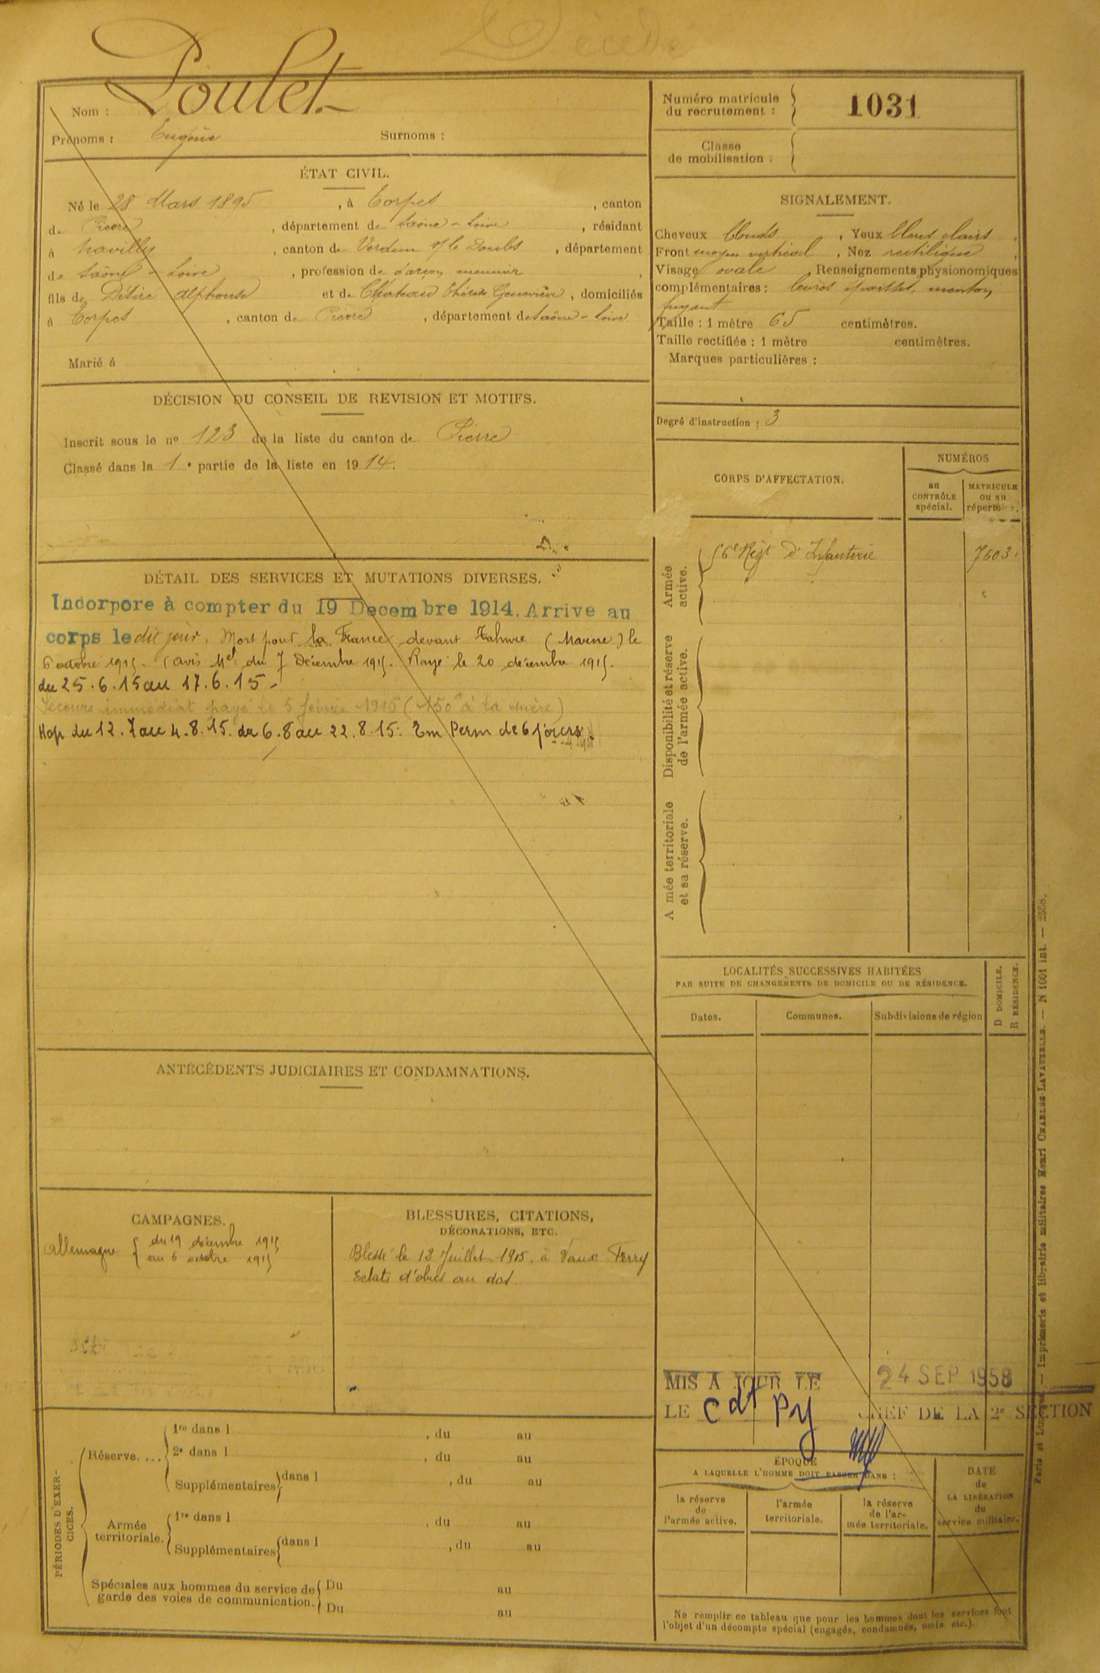 Décédé
Nom : Poulet
Prénoms : Eugène Surnoms :
ÉTAT CIVIL.
Né le 28 Mars 1895, à Torpes, canton
de Pierre, département de Saône-Loire, résidant
à Navilly, canton de Verdun s/ le Doubs, département
de Saône-Loire, profession de garçon meunier,
fils de Désiré Alphonse et de Thérèse Geneviève, domiciliés
à Torpes, canton de Pierre, département de Saône-Loire
Marié à
DÉCISION DU CONSEIL DE REVISION ET MOTIFS.
Inscrit sous le nº 123 de la liste du canton de Pierre
Classé dans la 1e partie de la liste en 1914.
DÉTAIL DES SERVICES ET MUTATIONS DIVERSES.
Incorporé à compter du 19 Decembre 1914. Arrive au
corps le dit jour. Mort pour la France devant Tahure (Marne) le
6 octobre 1915. (avis Mel du 7 Décembre 1915. Rayé le 20 décembre 1915.
du 25.6.15 au 17.6.15 -
Secours immédiat payé le 5 février 1916 (150f à la mère)
Hop du 12.7 au 4.8.15. du 6.8 au 22.8.15. Em Perm de 6 jours.
ANTÉCÉDENTS JUDICIAIRES ET CONDAMNATIONS.
CAMPAGNES.
Allemagne { du 19 décembre 1915
au 6 octobre 1915
BLESSURES, CITATIONS,
DÉCORATIONS, ETC.
Blessé le 12 Juillet 1915, à Vaux Ferry
Eclats d'obus au dos.
PÉRIODES D'EXERCICES.
Réserve....
1re dans l , du au
2e dans l , du au
Supplémentaires dans l , du au
Armée territoriale.
1re dans l , du au
Supplémentaires dans l , du au
Spéciales aux hommes du service de
garde des voies de communication.
Du au
Du au
Numéro matricule
du recrutement : 1031
Classe
de mobilisation :
SIGNALEMENT.
Cheveux blonds, Yeux bleus clairs,
Front moyen vertical, Nez rectiligne,
Visage ovale Renseignements physionomiques
complémentaires : menton
fuyant
Taille : 1 mètre 65 centimètres.
Taille rectifiée : 1 mètre centimètres.
Marques particulières :
Degré d'instruction : 3
CORPS D'AFFECTATION.
NUMÉROS
au
CONTRÔLE
spécial.
MATRICULE
ou au
répertoire.
Armée
active.
56e Régt d'Infanterie 7603
Disponibilité et réserve
de l'armée active.
Armée territoriale
et sa réserve.
LOCALITÉS SUCCESSIVES HABITÉES
PAR SUITE DE CHANGEMENTS DE DOMICILE OU DE RÉSIDENCE.
Dates.
Communes.
Subdivisions de région
D DOMICILE.
R RÉSIDENCE.
MIS A JOUR LE 24 SEP 1958
LE Cdt Py CHEF DE LA 2e SECTION
ÉPOQUE
A LAQUELLE L'HOMME DOIT PASSER DANS :
la réserve
de
l'armée active.
l'armée
territoriale.
la réserve
de l'ar-
mée territoriale.
DATE
de
LA LIBÉRATION
du
service militaire.
Ne remplir ce tableau que pour les hommes dont les services font
l'objet d'un décompte spécial (engagés, condamnés, omis etc.)
Paris et Limoges. — Imprimerie et librairie militaires Henri CHARLES-LAVAUZELLE. — N 1001 int. —